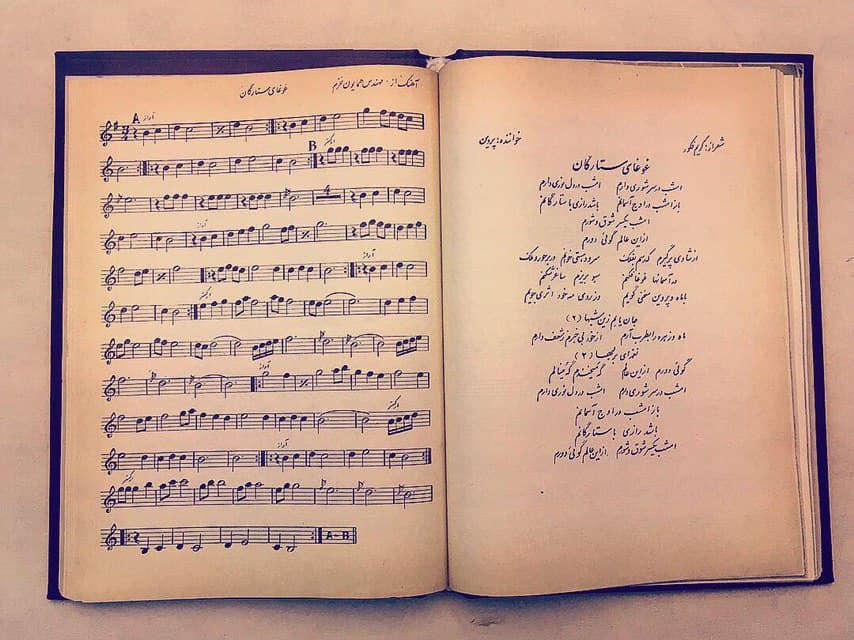 شعر از: کریم فکور خواننده: پروین
غوغای ستارگان
امشب در سر شوری دارم امشب در دل نوری دارم
باز امشب در اوج آسمانم باشد رازی با ستارگانم
امشب یکسر شوق و شورم
از این عالم گوئی دورم
از شادی پرگیرم که رسم بفلک سرود هستی خوانم در بر حور و ملک
در آسمانها غوغا فکنم سبو بریزم ساغر شکنم
با ماه و پروین سخنی گویم وز روی مه خود اثری جویم
جان یابم زین شبها (۲)
ماه و زهره را بطرب آرم از خود بی خبرم ز شعف دارم
نغمه‌ای بر لبها (۲)
گوئی دورم از این عالم
امشب در سر شوری دارم امشب در دل نوری دارم
باز امشب در اوج آسمانم
باشد رازی با ستارگانم
امشب یکسر شوق و شورم از این عالم گوئی دورم
آهنگ از: مهندس همایون خرم غوغای ستارگان
A آواز
B ارکستر
4
آواز
آواز
ارکستر
آواز
ارکستر
آواز
ارکستر
A-B